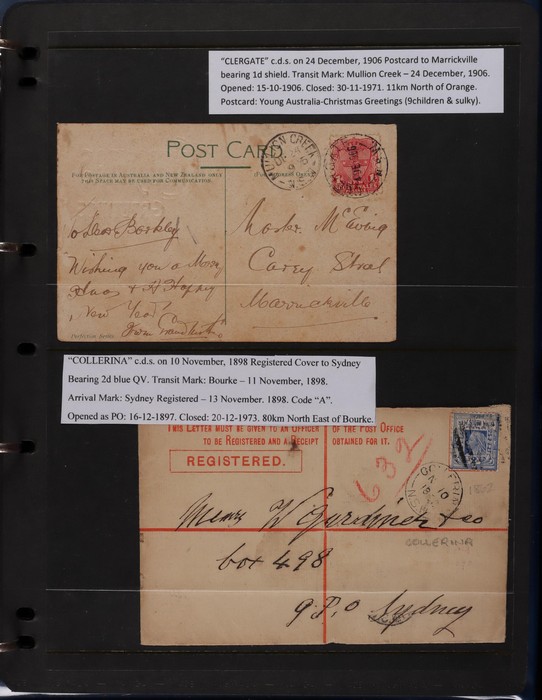 "CLERGATE" c.d.s. on 24 December, 1906 Postcard to Marrickville
bearing 1d shield. Transit Mark: Mullion Creek – 24 December, 1906.
Opened: 15-10-1906. Closed: 30-11-1971. 11km North of Orange.
Postcard: Young Australia-Christmas Greetings (9children & sulky).
POST CARD
FOR POSTAGE IN AUSTRALIA AND NEW ZEALAND ONLY
THIS SPACE MAY BE USED FOR COMMUNICATION.
MULLION CREEK
Wishing you a Merry
& A Happy
New Year
from
Carey Street
Marrickville
"COLLERINA" c.d.s. on 10 November, 1898 Registered Cover to Sydney
Bearing 2d blue QV. Transit Mark: Bourke – 11 November, 1898.
Arrival Mark: Sydney Registered – 13 November. 1898. Code "A".
Opened as PO: 16-12-1897. Closed: 20-12-1973. 80km North East of Bourke.
THIS LETTER MUST BE GIVEN TO AN OFFICER OF THE POST OFFICE
TO BE REGISTERED AND A RECEIPT OBTAINED FOR IT.
REGISTERED.
632
COLLERINA
Messrs W Gardner & co
COLLERINA
box 498
G.P.O Sydney